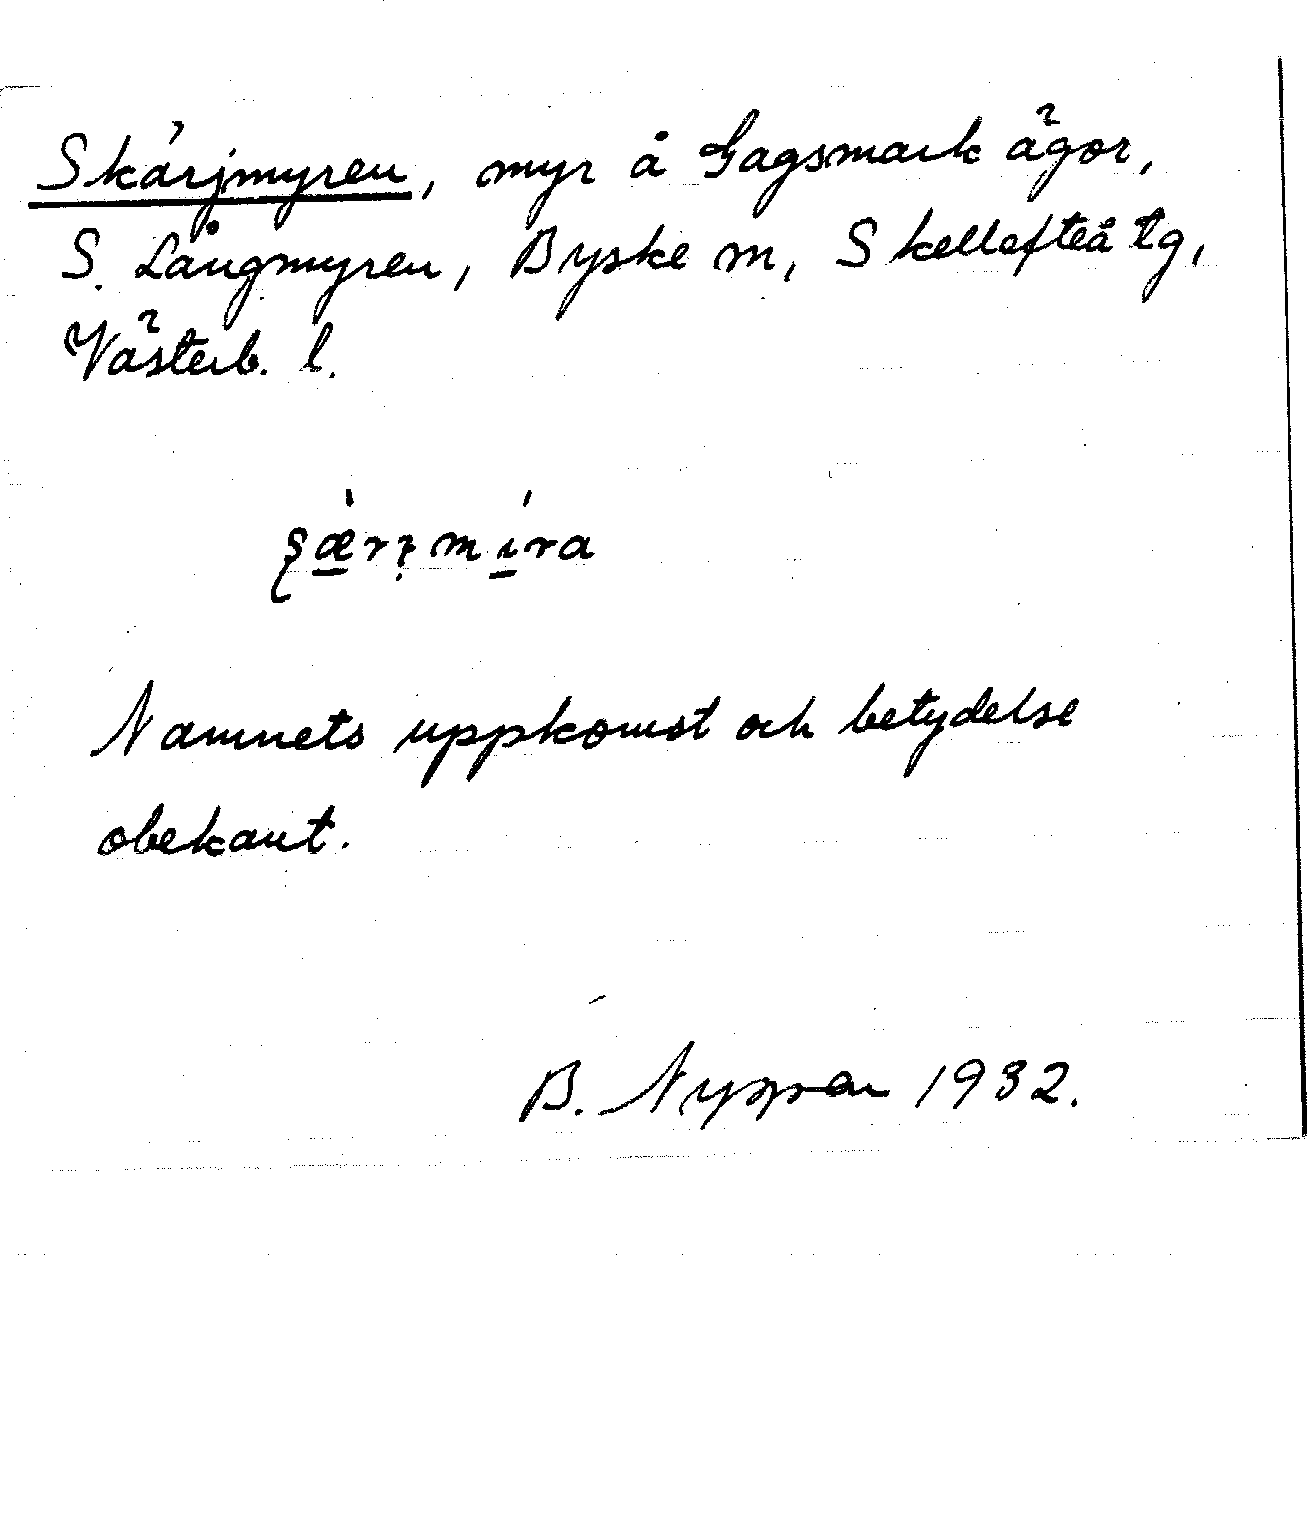 Skärjmyren, myr å Gagsmark ägor,
S. Långmyren, Byske m, Skellefteå tg,
Västerb. l.
Namnets uppkomst och betydelse
obekant.
B. Nyman 1932.